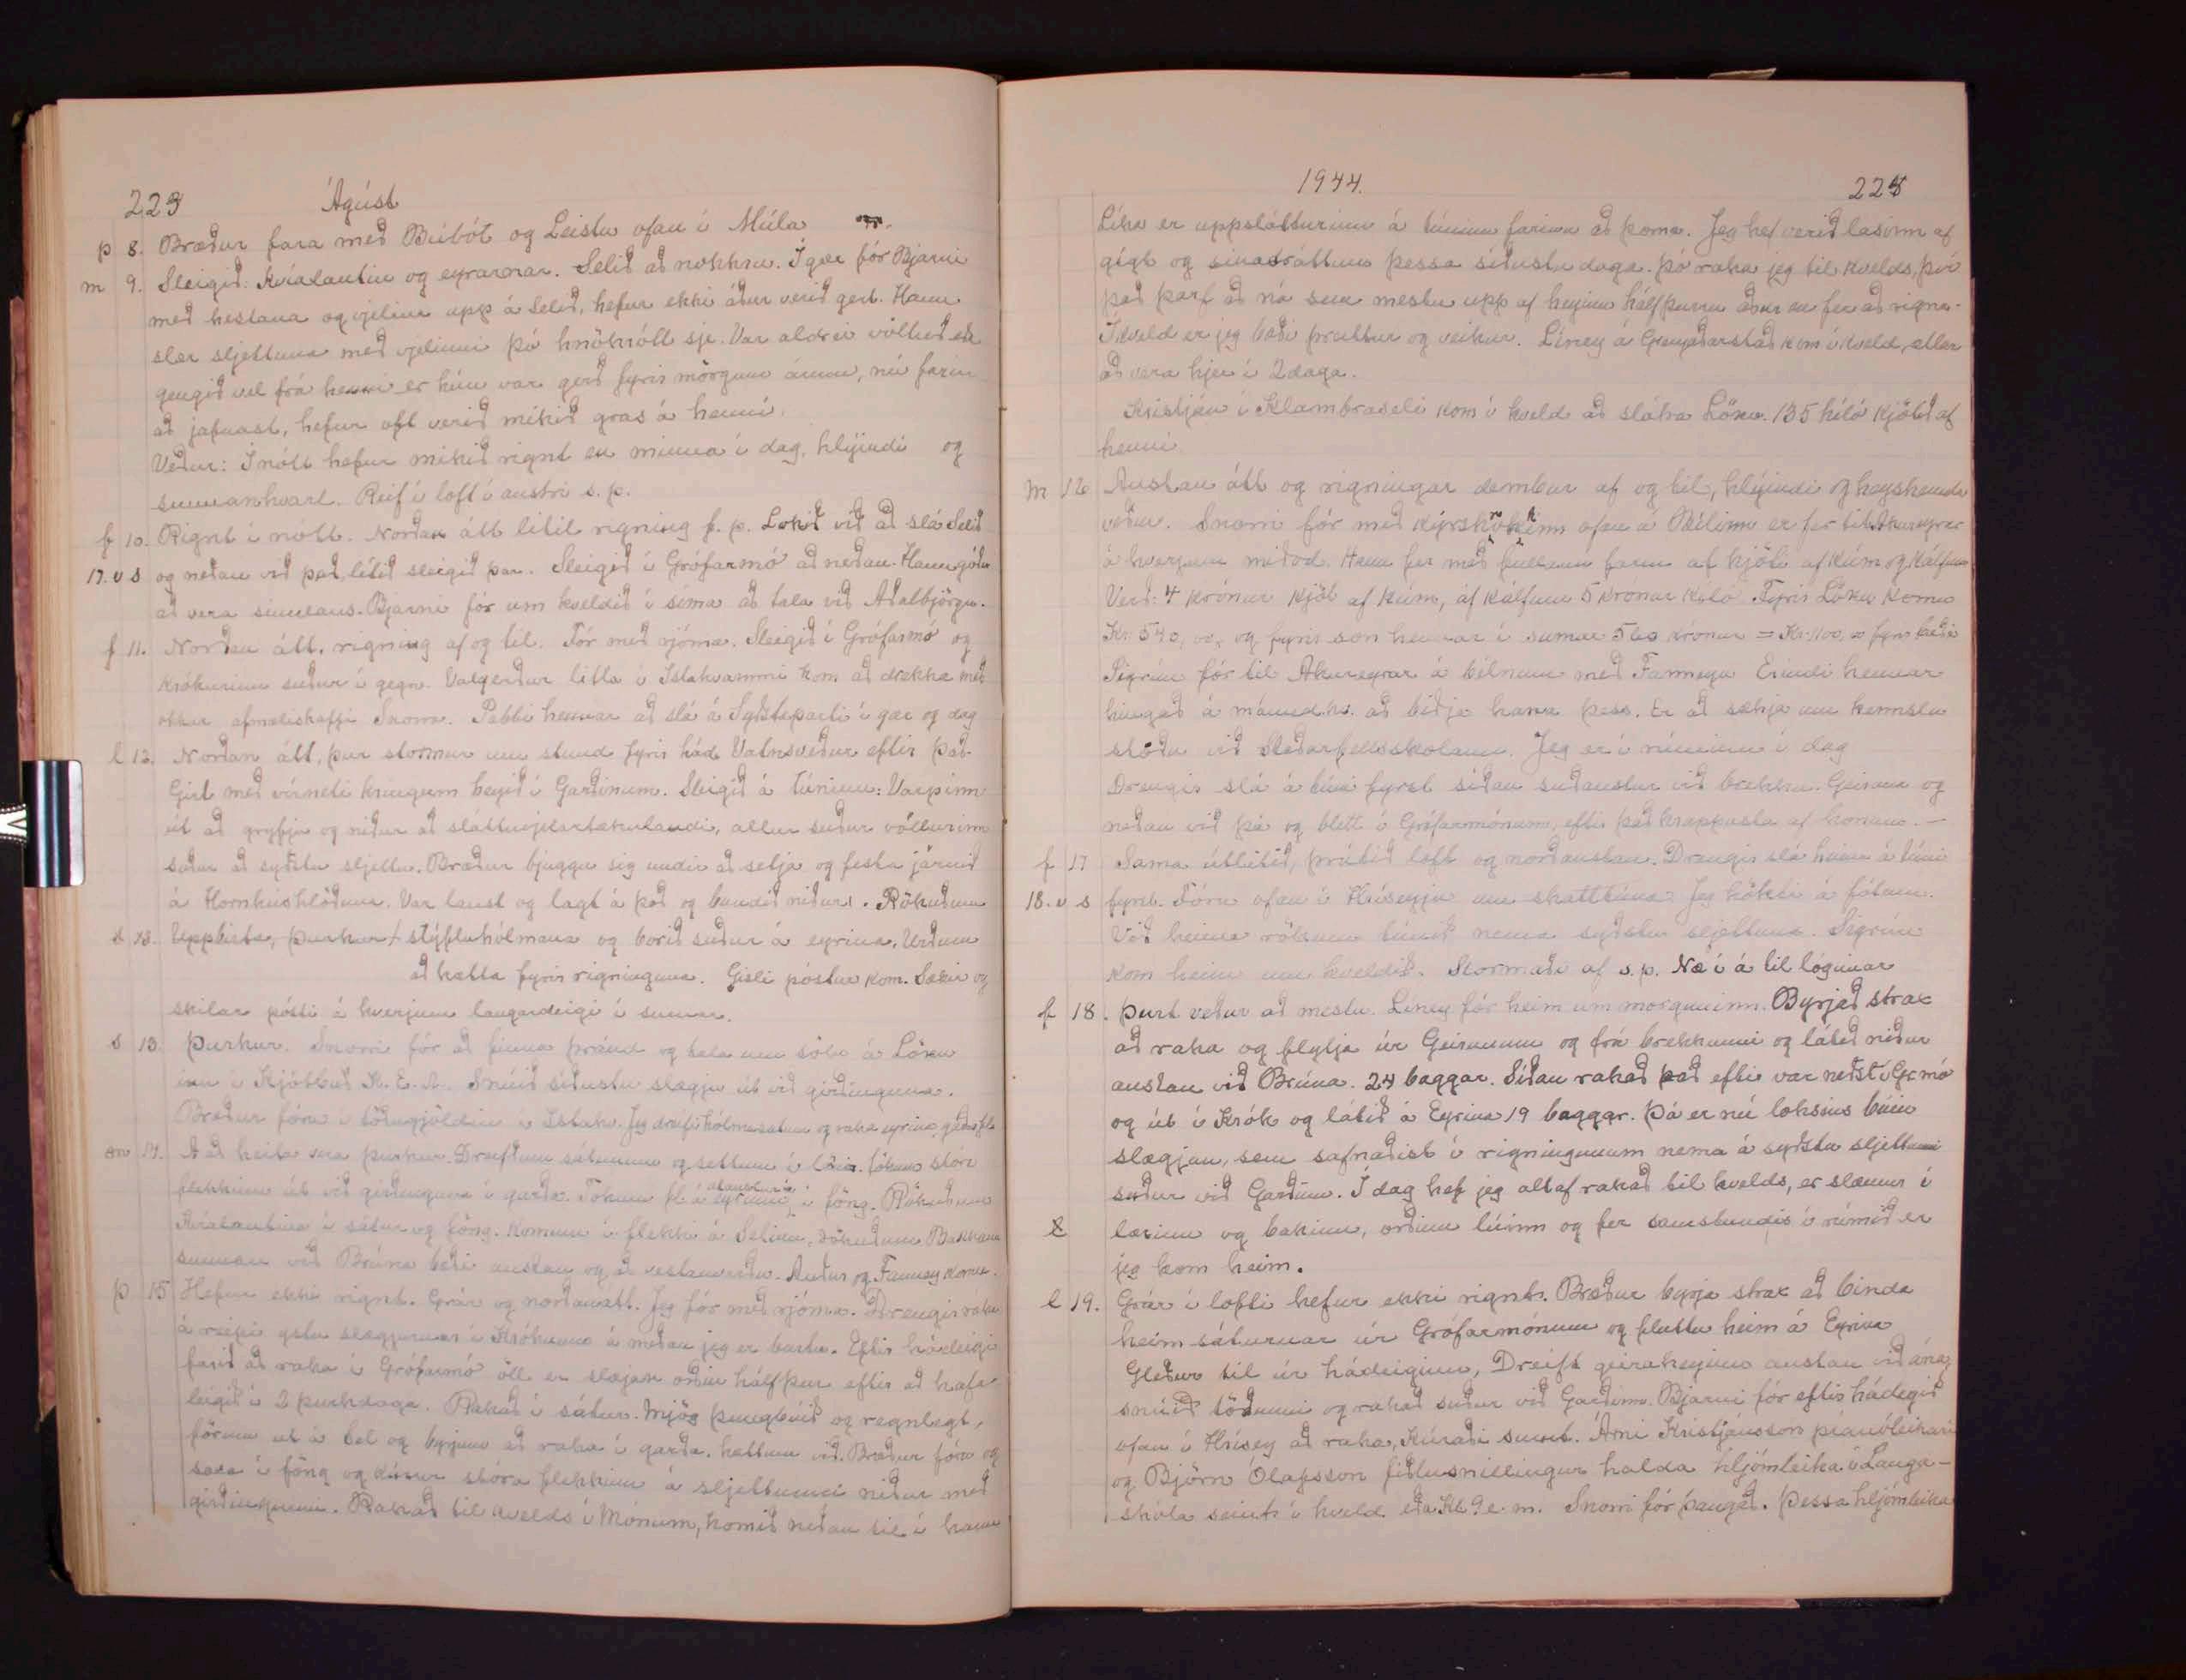 223 Ágúst
þ 8. Bræður fara með Búbót og Leistu ofan í Múla
m 9. Sleigið. Kvíalautin og eyrarnar. Selið að nokkru. Í gær fór Bjarni
með hestana og vjelina upp á Selið, hefur ekki áður verið gert. Hann
slær sljettuna með vjelinni þó hnökrótt sje. Var aldrei völtuð en
gengið vel frá henni er hún var gerð fyrir mörgum árum, nú farin
að jafnast, hefur oft verið mikið gras á henni.
Veður: Í nótt hefur mikið rignt en minna í dag, hlýindi og
sunnanhvart. Reif í loft í austri s.p.
f 10. Rignt í nótt. Norðan átt lítil rigning f. p. Lokið við að slá Selið
17. v s og neðan við það, lítið sleigið þar. Sleigið í Grófarmó að neðan. Hann góður
að vera sinulaus. Bjarni fór um kveldið í síma að tala við Aðalbjörgu.
f 11. Norðan átt, rigning af og til. Fór með rjóma. Sleigið í Grófarmó og
Krókurinn suður í gegn. Valgerður litla í Islahvammi kom að drekka með
okkur afmæliskaffi Snorra. Pabbi hennar að slá á Syðstaparti í gær og dag
l 12. Norðan átt, þur stormur um stund fyrir hád. Vatnsveður eftir það.
Girt með vírneti kringum heyið í Garðinum. Sleigið á túninu: Varpinn
út að gryfju og niður að sláttuvjelartækulandi, allur suður völlurinn
suður að syðstu sljettu. Bræður bjuggu sig undir að setja og festa járnið
á Hornhúshlöðuna. Var laust og lagt á það og bundið niður. Rökuðum
s 13. Uppbirta, þurkur / stýfluhólmana og borið suður á eyrina. Urðum
að hætta fyrir rigninguna. Gísli póstur kom. Sækir og
skilar pósti á hverjum laugardeigi í sumar.
s 13. Þurkur. Snorri fór að finna Þránd og tala um sölu á Löku
inn í Kjötbúð K.E.A. Snúið síðustu slægju út við girðinguna.
Bræður fóru í töðugjöldin í Isluhv. Jeg dreifi hólmasátum og raka eyrina
m 14. Að heita má þurkur. Dreifðum sátunum og settum í
flekkinn út við girðinguna í garða. Tókum fl. á eyrinni í föng. Rökuðum
Kvíalautina í sátur og föng. Komum í flekki á Selinu, rökuðum Bakkana
sunnan við Brúna bæði austan og að vestanverðu. Auður og Fanney komu.
þ 15 Hefur ekki rignt. Grár og norðanátt. Jeg fór með rjóma. Drengir raka
á reipi ystu slægjurnar í Króknum á meðan jeg er burtu. Eftir hádeigi
farið að raka í Grófarmó öll er slægjan orðin hálf þur eftir að hafa
leigið í 2 þurkdaga. Rakað í sátur. Mjög þungbúið og regnlegt,
förum út á Sel og byrjum að raka í garða, hættum við. Bræður fóru og
saxa í föng og dúsur stóra flekkinn á sljettunni niður með
girðingunni. Rakað til kvelds í Mónum, komið neðan til í hann
1944. 225
Líka er uppslátturinn á túninu farinn að koma. Jeg hef verið lasinn af
gigt og sinadráttum þessa síðustu daga. Þó raka jeg til kvelds, því
það þarf að ná sem mestu upp af heyinu hálfþurru áður en fer að rigna.
Í kveld er jeg bæði þreittur og veikur. Líney á Grenjaðarstað kom í kveld, ætlar
að vera hjer í 2 daga.
Kristján í Klambraseli kom í kveld að slátra Löku. 135 kíló kjötið af
henni.
m 16 Austan átt og rigningar dembur af og til, hlýindi og heyskemda
veður. Snorri fór með kýrskrokkinn ofan á Bílinn er fer til Akureyrar
á hverjum miðvd. Hann fer með fullann farm af kjöti af kúm og kálfum
Verð: 4 krónur kjöt af kúm, af kálfum 5 krónur kíló. Fyrir Löku komu
Kr. 540,00, og fyrir son hennar í sumar 560 krónur = Kr. 1100,00 fyrir bæði
Sigrún fór til Akureyrar á bílnum með Fanneyu. Erindi hennar
hingað á mánud.kv. að biðja hana þess. Er að sækja um kenslu
stöðu við Staðarfellsskólann. Jeg er í rúminu í dag
Drengir slá á túni fyrst síðan suðaustur við brekku. Geirana og
neðan við þá og blett í Grófarmónum, eftir það krappasta af honum.
f 17 Sama útlitið, þrútið loft og norðaustan. Drengir slá heima á túni
18. v s fyrst. Fóru ofan í Hríseyju um skatttíma. Jeg kökti á fótum.
Við heima rökum túnið nema syðstu sljettuna. Sigrún
kom heim um kveldið. Stormaði af s.p. Næ í á til lóginar
f 18. Þurt veður að mestu. Líney fór heim um morguninn. Byrjað strax
að raka og flytja úr Geirunum og frá brekkunni og látið niður
austan við Brúna. 24 baggar. Síðan rakað það eftir var neðst í Gr.mó
og út í Krók og látið á Eyrina 19 baggar. Þá er nú loksins búin
slægjan, sem safnaðist í rigningunum nema á syðstu sljettunni
suður við Garðinn. Í dag hef jeg altaf rakað til kvelds, er slæmur í
lærinu og bakinu, orðinn lúinn og fer samstundis í rúmið er
jeg kom heim.
l 19. Grár í lofti hefur ekki rignt. Bræður byrja strax að binda
heim sáturnar úr Grófarmónum og fluttu heim á Eyrina
Gleður til úr hádeiginu, Dreift geiraheyinu austan við ána,
snúið töðunni og rakað suður við Garðinn. Bjarni fór eftir hádegið
ofan í Hrísey að raka, Kúraði sumt. Árni Kristjánsson píanóleikari
og Björn Ólafsson fiðlusnillingur halda hljómleika í Lauga-
skóla seint í kveld eða Kl. 9 e.m. Snorri fór þangað. Þessa hljómleika